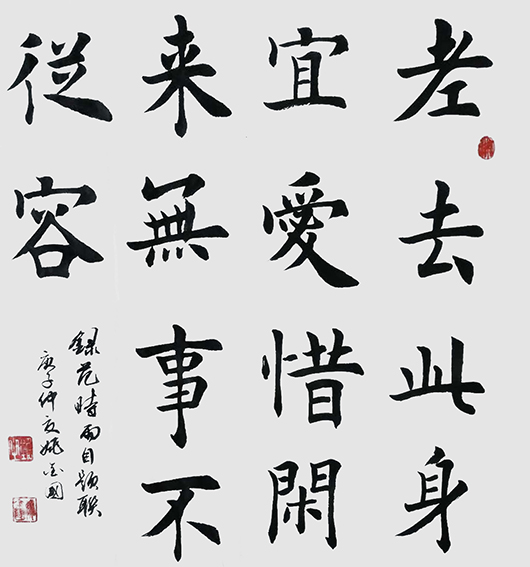 老去此身
宜愛惜閑
来無事不
従容
録范時雨自題聯
庚子仲夏姚國